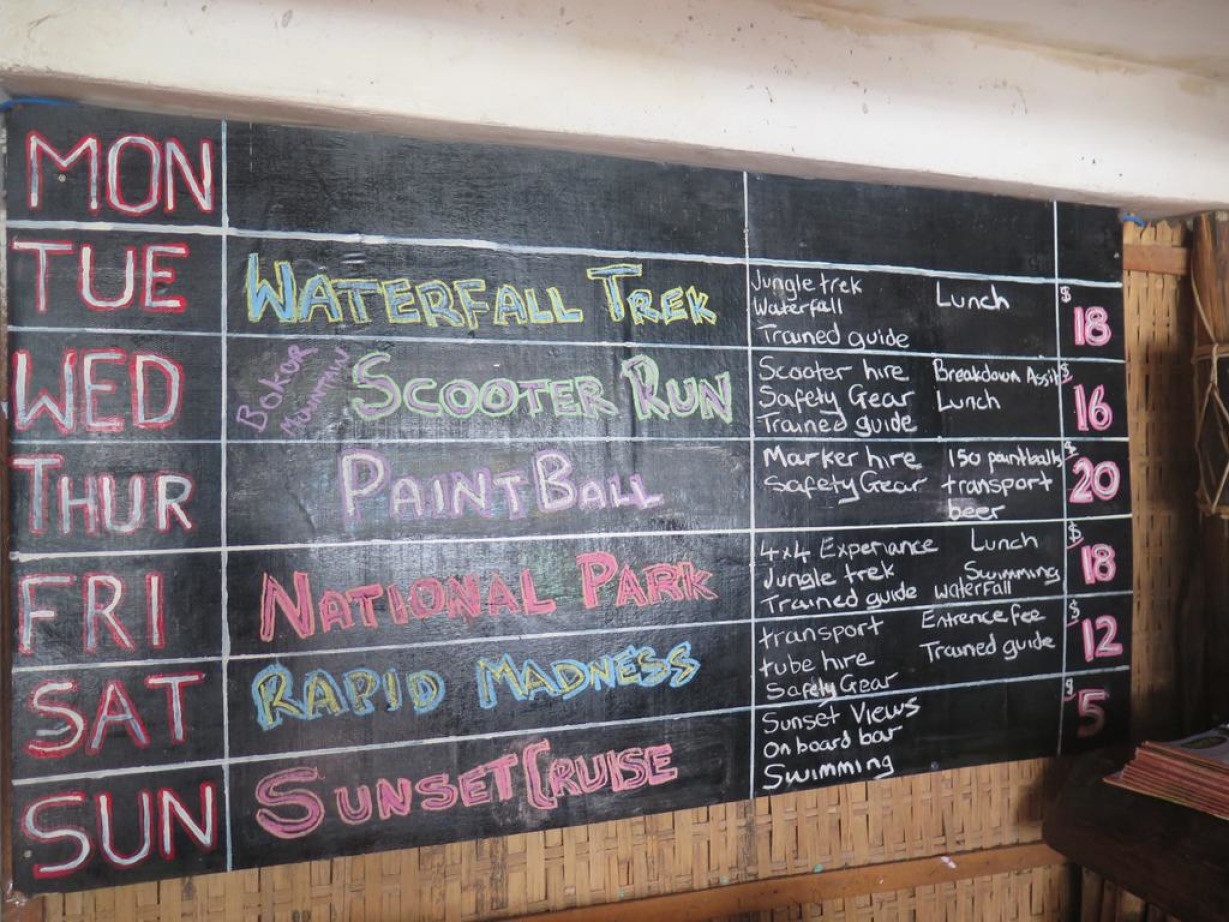 MON
TUE
WATERFALL TREK
Jungle trek
Waterfall
Trained guide
Lunch
$ 18
WED
BOKOR MOUNTAIN
SCOOTER RUN
Scooter hire
Safety Gear
Trained guide
Breakdown Assit
Lunch
$ 16
THUR
PAINTBALL
Marker hire
Safety Gear
150 paintballs
transport
beer
$ 20
FRI
NATIONAL PARK
4x4 Experiance
Jungle trek
Trained guide
Lunch
Swimming
waterfall
$ 18
SAT
RAPID MADNESS
transport
tube hire
Safety Gear
Entrence fee
Trained guide
$ 12
SUN
SUNSET CRUISE
Sunset Views
On board bar
Swimming
$ 5